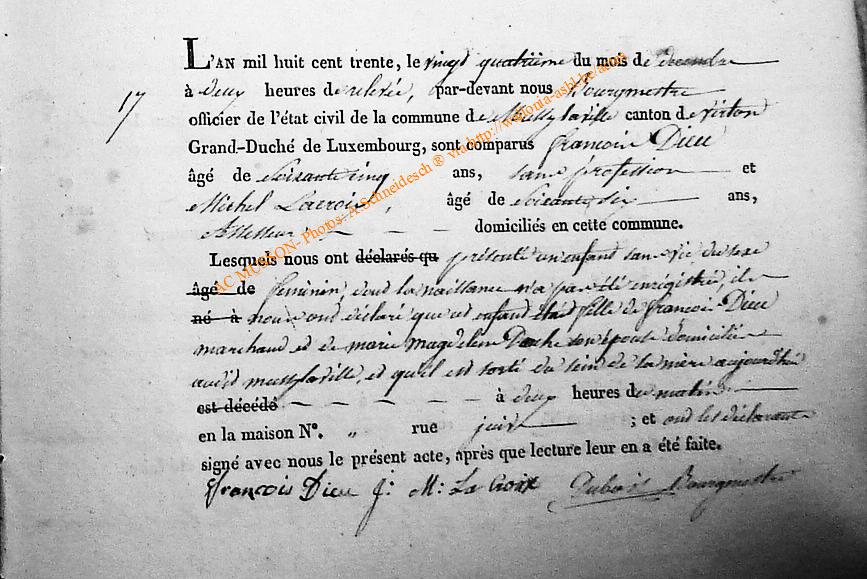 L'AN mil huit cent trente, le vingt quatrième du mois de decembre
17
à deux heures de relevée, par-devant nous Bourgmestre
officier de l'état civil de la commune de Mussylaville canton de virton
Grand.-Duché de Luxembourg, sont comparus francois Dieu
âgé de Soixante cinq ans, sans profession et
Michel Lacroix, âgé de soixante six ans,
assesseur domiciliés en cette commune.
Lesquels nous ont déclarés qu présenté un enfant sans vie du sexe
âgé de feminin, dont la naissance n'a pas été enrégistrée, ils
né à nous ont déclaré que cet enfant était fille de francois Dieu
marchand et de marie magdelene son épouse domiciliés
audit mussylaville, et qu'il est sorti du sein de la mère aujourd'hui
est décédé à deux heures du matin
en la maison N°. „ rue ; et ont les déclarants
signé avec nous le présent acte, après que lecture leur en a été faite.
françois Dieu J: M: La Croix Dubois Bourgmestre
AC MUSSON- Photos: A.Schneidesch ® via http://wallonia-asbl.be/acom